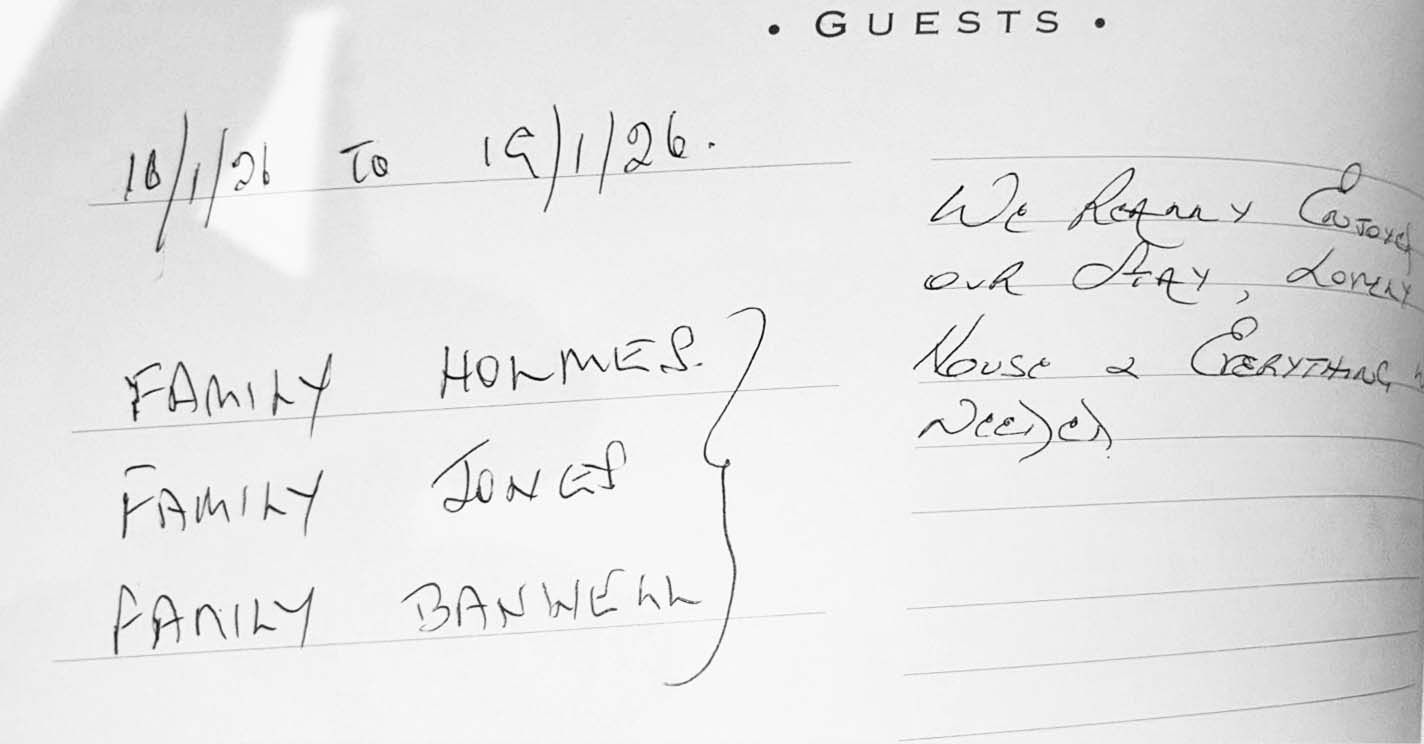 • GUESTS •
16/1/26 TO 19/1/26.
FAMILY HOLMES.
FAMILY JONES
FAMILY BANWELL
We Really Enjoyed
OUR Stay, Lovely
House & EVERYTHING
Needed